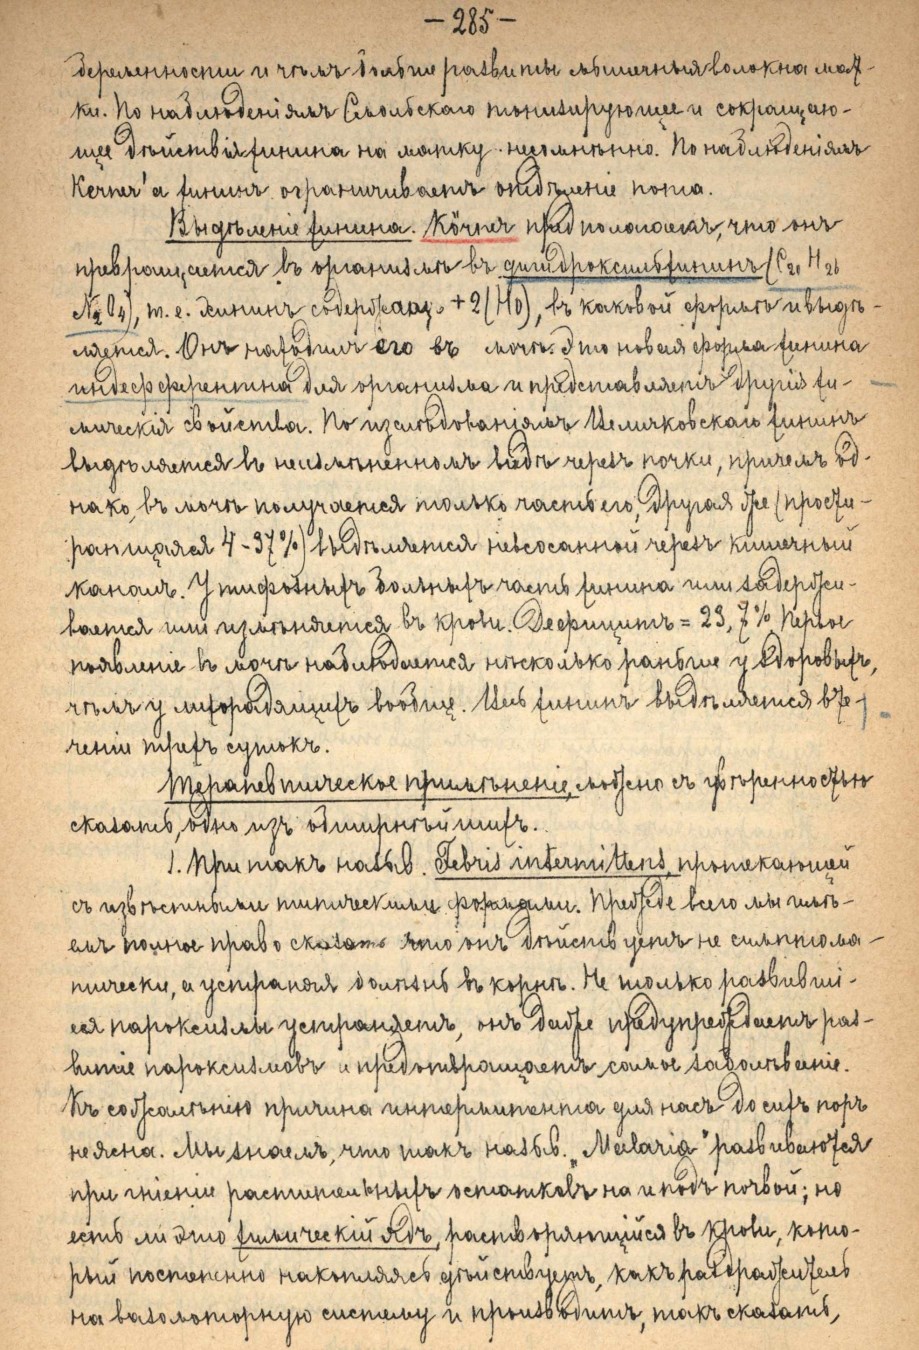 — 285 —
беременности и чѣмъ больше развиты мышечныя волокна мат-
ки. По наблюденіямъ тонизирующее и сокращаю-
щее дѣйствія хинина на матку несомнѣнно. По наблюденіямъ
Kerner'а хининъ ограничиваетъ отдѣленіе пота.
Выдѣленіе хинина. Кёрнеръ предполагаетъ, что онъ
превращается въ организмѣ въ дигидроксилхининъ (C20 H26
N2O4), т.е. хининъ содержащ. + 2(HO), въ каковой формѣ и выдѣ-
ляется. Онъ находилъ его въ мочѣ. Это новая форма хинина
индефферентна для организма и представляетъ другія хи-
мическія свойства. По изслѣдованіямъ хининъ
выдѣляется въ неизмѣненномъ видѣ черезъ почки, причемъ од-
нако, въ мочѣ получается только часть его, другая же (прости-
рающаяся 4-37%) выдѣляется невсосанной черезъ кишечный
каналъ. У тифозныхъ больныхъ часть хинина или задержи-
вается или измѣняется въ крови. Дефицитъ = 23,7%. Первое
появленіе въ мочѣ наблюдается нѣсколько раньше у здоровыхъ,
чѣмъ у лихорадящихъ вообще. Весь хининъ выдѣляется въ те-
ченіе трехъ сутокъ.
Терапевтическое примѣненіе, можно съ увѣренностью
сказать, одно изъ обширнѣйшихъ.
1. При такъ назыв. Febris intermittens, протекающей
съ извѣстными типическими формами. Прежде всего мы имѣ-
емъ полное право сказать что онъ дѣйствуетъ не симптома-
тически, а устраняя болѣзнь въ корнѣ. Не только развивші-
еся пароксизмы устраняетъ, онъ даже предупреждаетъ раз-
витіе пароксизмовъ и предотвращаетъ самое заболѣваніе.
Къ сожалѣнію причина интермитента для насъ до сихъ поръ
неясна. Мы знаемъ, что такъ назыв. „Malaria" развиваются
при гніеніи растительныхъ остатковъ на и подъ почвой; но
есть ли это химическій ядъ, растворяющійся въ крови, кото-
рый постепенно накопляясь дѣйствуетъ, какъ раздражитель
на вазомоторную систему и производитъ, такъ сказать,